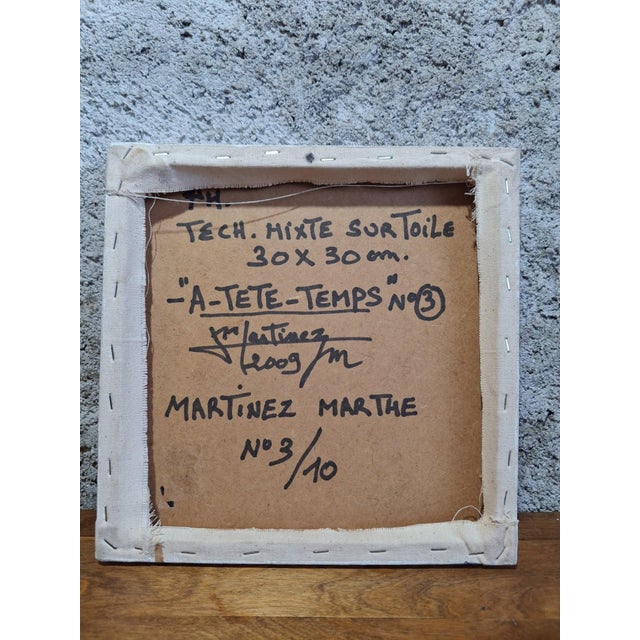 TECH. MIXTE SUR TOILE
30 X 30 cm.
- "A-TETE-TEMPS" N° 3
Martinez
2009 M
MARTINEZ MARTHE
N° 3/10